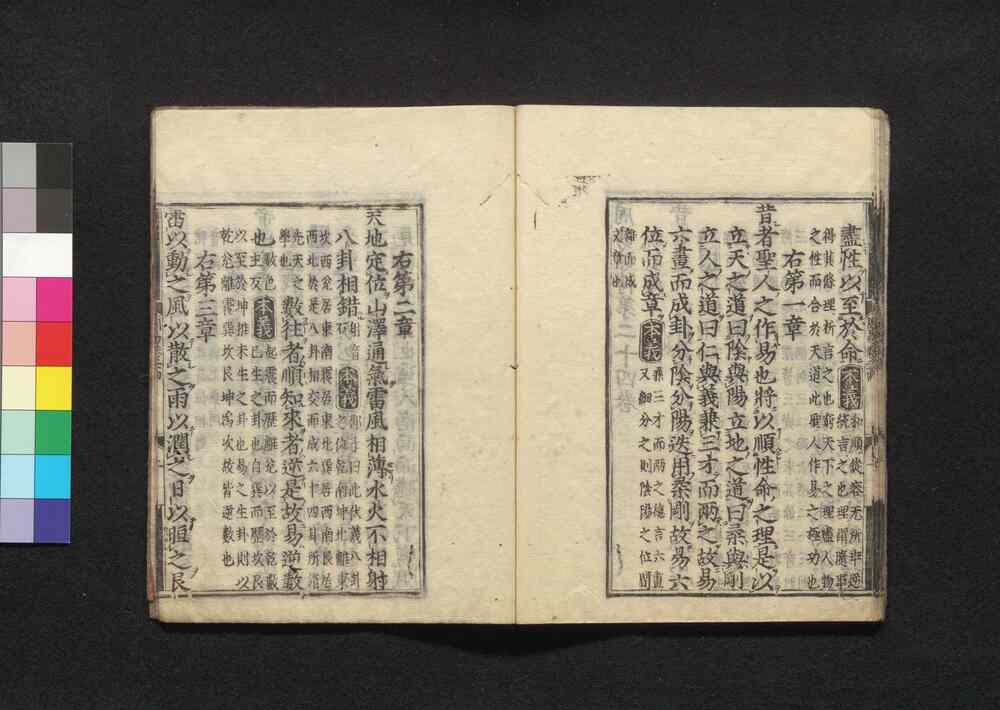 盡性以至於命本義和順從容无所乖逆
統言之也理謂隨事
得其條理析言之也窮天下之理盡人物
之性而合於天道此聖人作易之極功也
右第一章
昔者聖人之作易也將以順性命之理是以
立天之道曰陰與陽立地之道曰柔與剛
立人之道曰仁與義兼三才而兩之故易
六畫而成卦分陰分陽迭用柔剛故易六
位而成章本義兼三才而兩之總言六畫
又細分之則陰陽之位間
雜而成
文章也
右第二章
天地定位山澤通氣雷風相薄水火不相射
八卦相錯本義邵子曰此伏羲八卦
之位乾南坤北離東
坎西兌居東南震居東北巽居西南艮居
西北於是八卦相交而成六十四卦所謂
先天之
學也
數往者順知來者逆是故易逆數
也本義起震而歷離兌以至於乾數
已生之卦也自巽而歷坎艮
以至於坤推未生之卦也易之生卦則以
乾兌離震巽坎艮坤爲次故皆逆數也
右第三章
雷以動之風以散之雨以潤之日以晅之艮